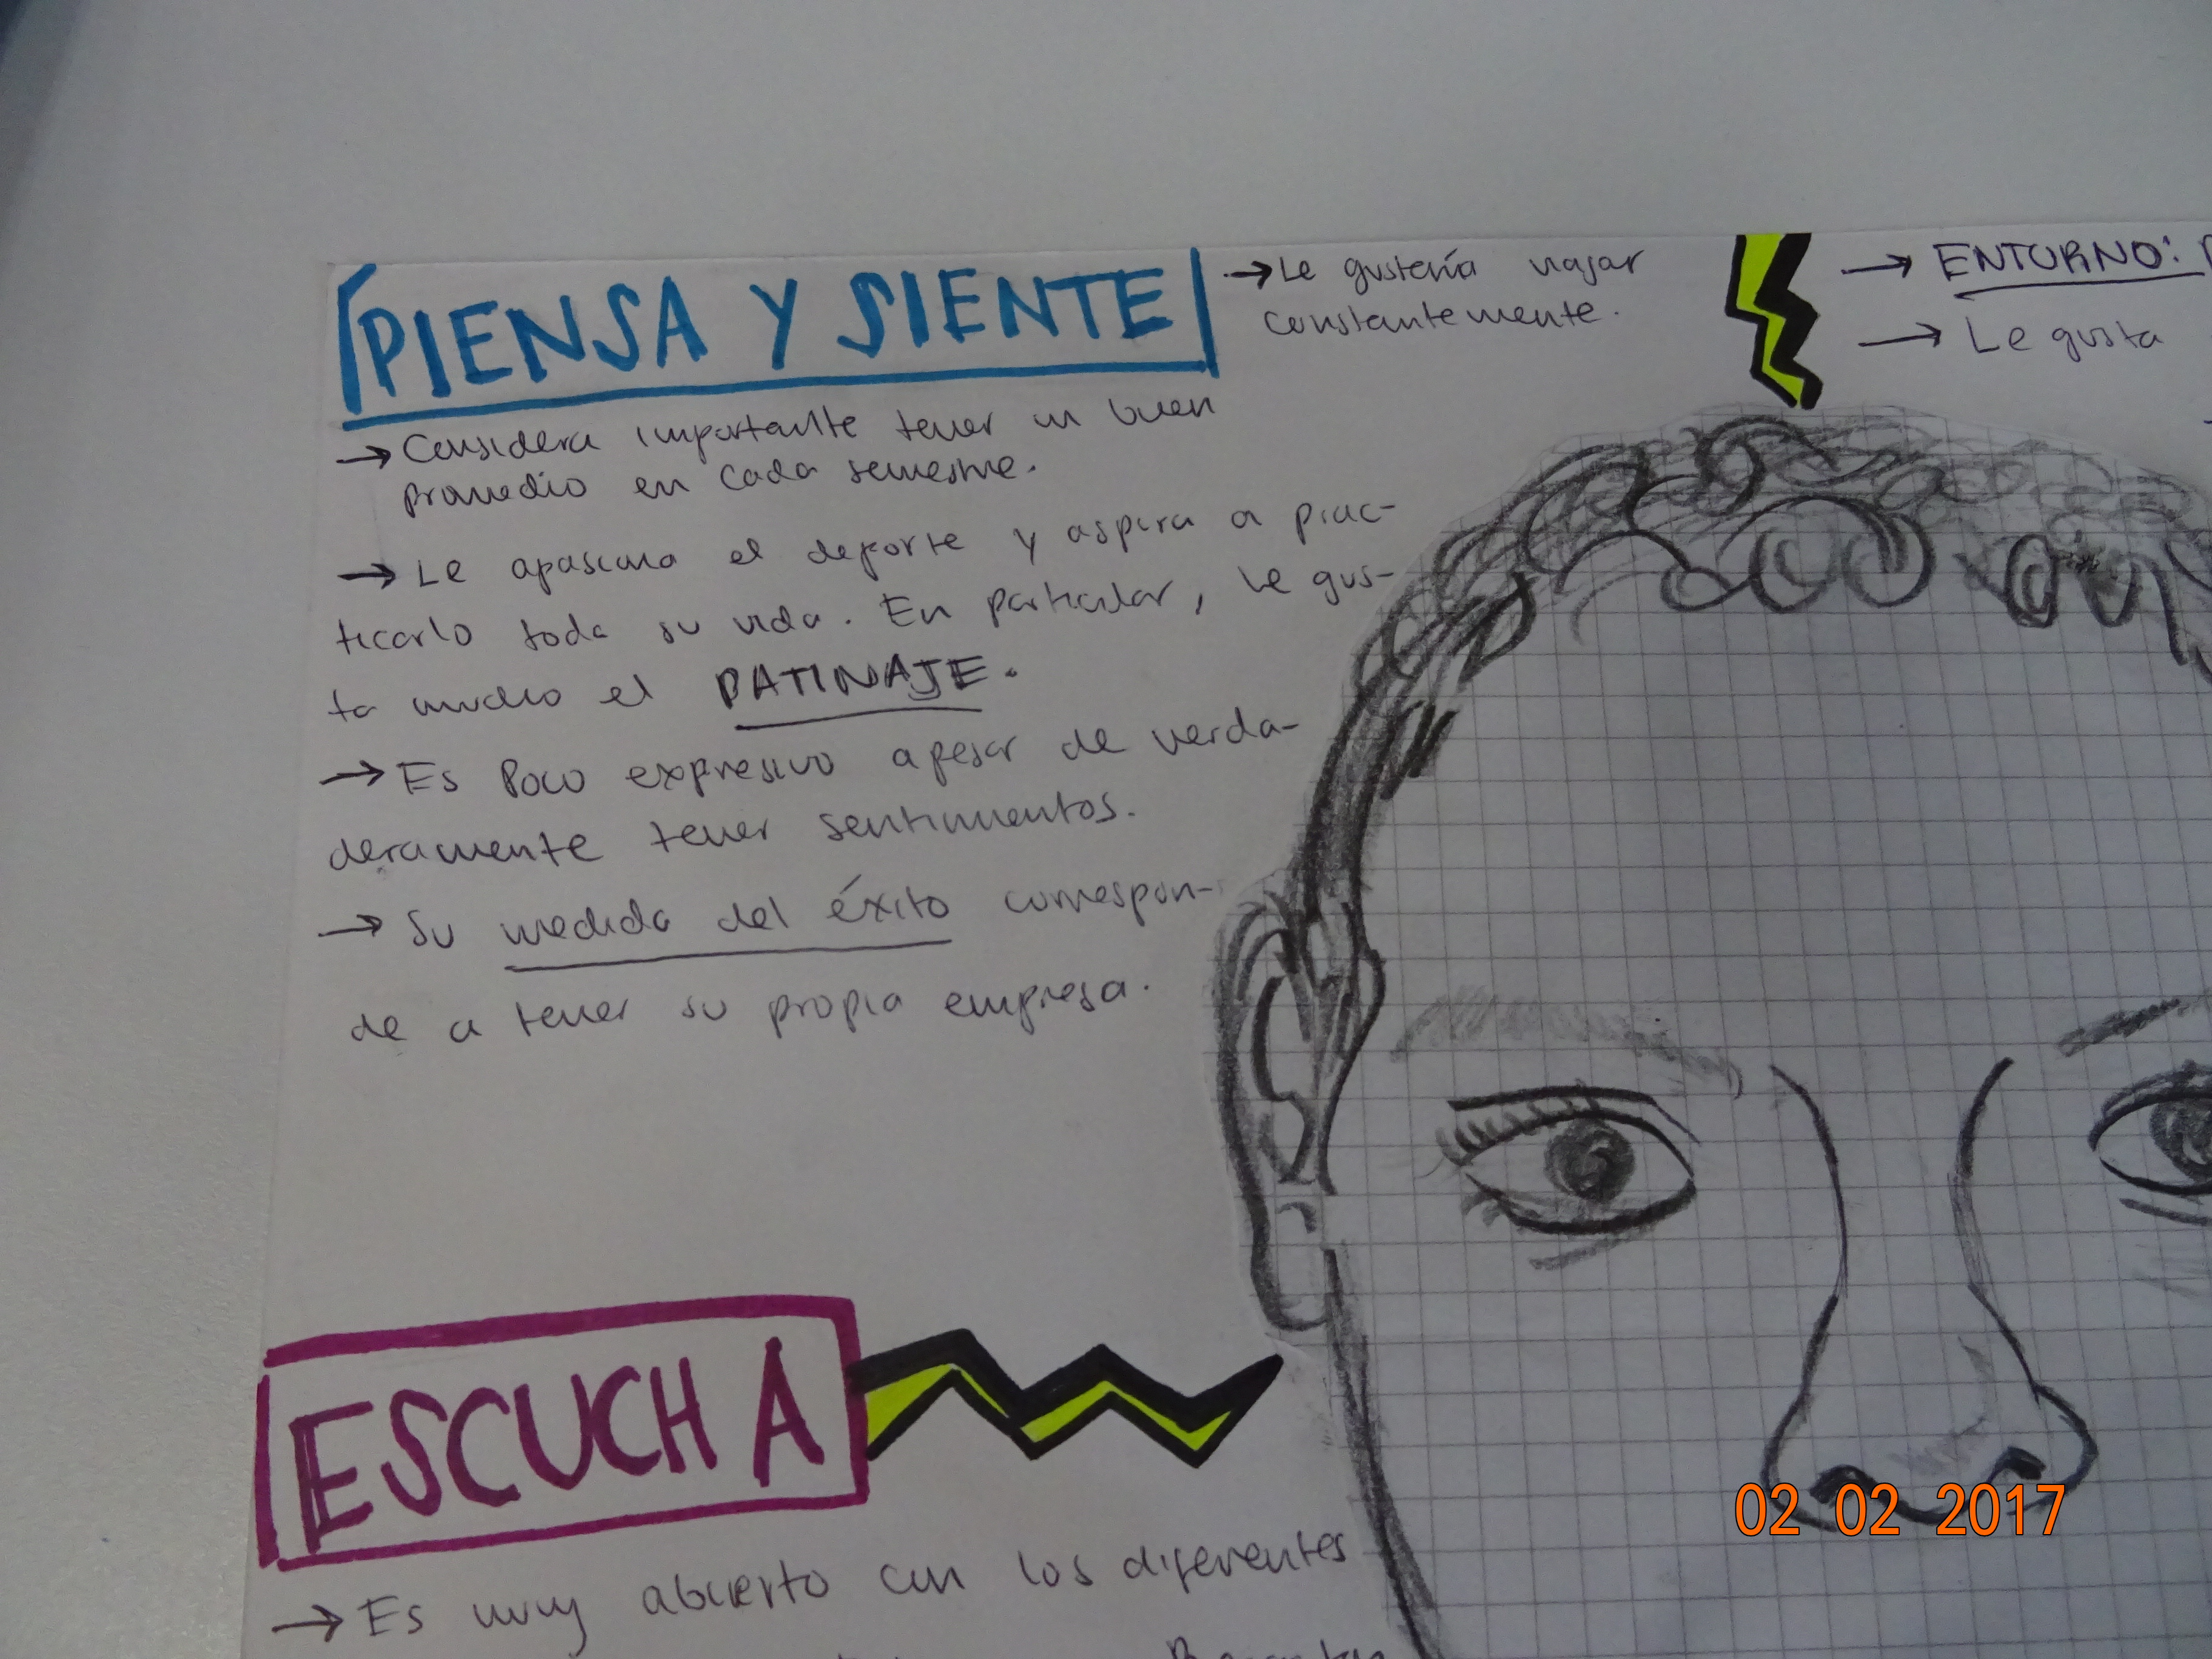 PIENSA Y SIENTE
→ Considera importante tener un buen
promedio en cada semestre.
→ Le apasiona el deporte y aspira a prac-
ticarlo toda su vida. En particular, le gus-
ta mucho el PATINAJE.
→ Es poco expresivo apesar de verda-
deramente tener sentimientos.
→ Su medida del éxito correspon-
de a tener su propia empresa.
→ Le gustaría viajar
constantemente.
→ ENTORNO:
→ Le gusta
ESCUCHA
→ Es muy abierto con los diferentes
02 02 2017